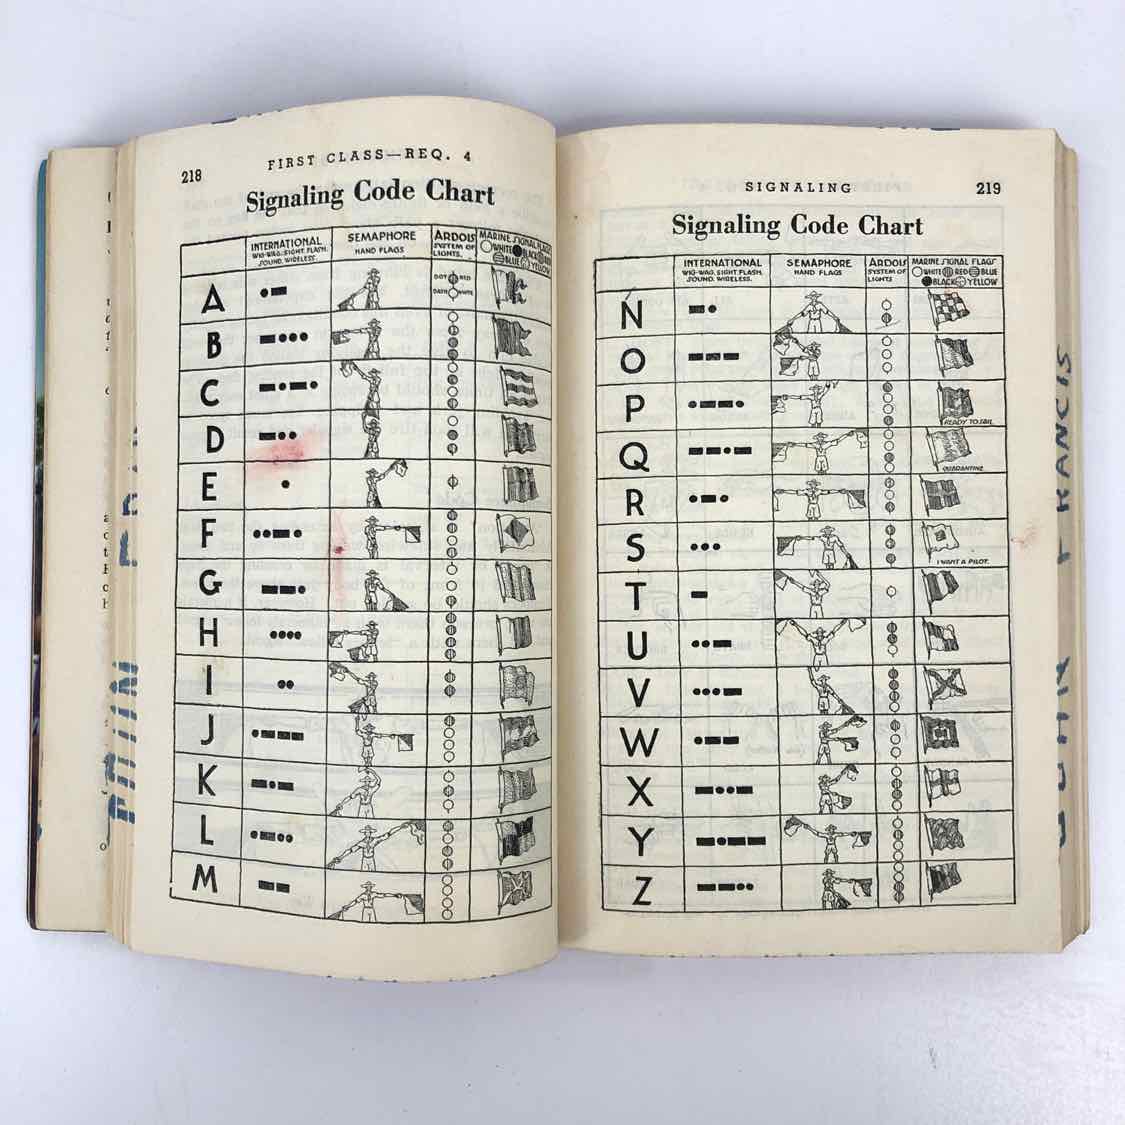 218
FIRST CLASS—REQ. 4
Signaling Code Chart
INTERNATIONAL
WIG-WAG, SIGHT, FLASH,
SOUND, WIRELESS.
SEMAPHORE
HAND FLAGS
ARDOIS
SYSTEM OF
LIGHTS.
MARINE SIGNAL FLAGS
WHITE BLACK RED
BLUE YELLOW
A
DOT RED
DASH WHITE
B
C
D
E
F
G
H
I
J
K
L
M
SIGNALING
219
Signaling Code Chart
INTERNATIONAL
WIG-WAG, SIGHT, FLASH,
SOUND, WIRELESS.
SEMAPHORE
HAND FLAGS
ARDOIS
SYSTEM OF
LIGHTS
MARINE SIGNAL FLAGS
WHITE RED BLUE
BLACK YELLOW
N
O
P
READY TO SAIL.
Q
QUARANTINE
R
S
I WANT A PILOT.
T
U
V
W
X
Y
Z
FRANCIS